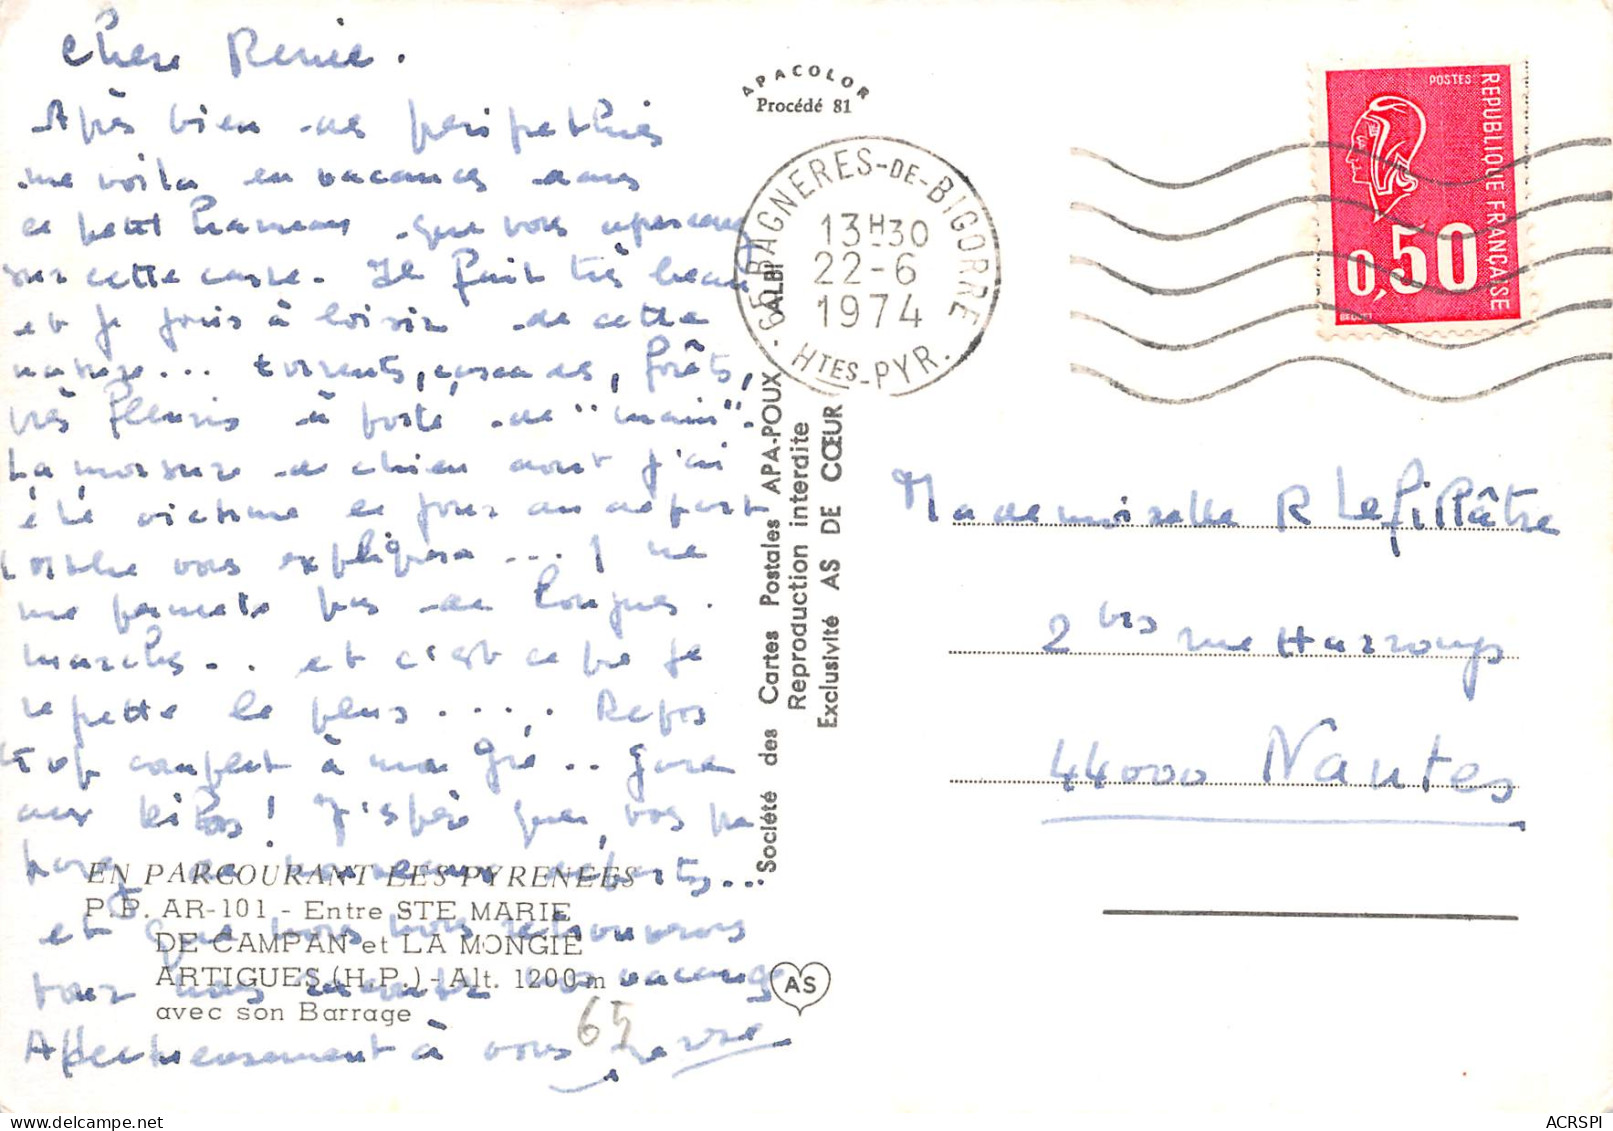 Chère Renée.
Après bien des péripéthies
me voila en vacances dans
ce petit hameau que vous apercevez
sur cette carte. Il fait très beau
et je jouis à loisir de cette
nature... torrents, cascades, forêts,
près fleuris à porté de "main".
La morsure de chien dont j'ai
été victime le jour du départ
vous expliquera... ne
me permets pas de longues
marches... et c'est ce que je
regrette le plus..... Repos
trop complet à mon gré.. Gare
aux kilos! J'espère que, vous
départs...
et que nous nous retrouverons
pour nous raconter nos vacances
Affectueusement à vous
EN PARCOURANT LES PYRENEES
P.P. AR-101 - Entre STE MARIE
DE CAMPAN et LA MONGIE
ARTIGUES (H.P.) - Alt. 1200 m
avec son Barrage
65
APACOLOR
Procédé 81
65 BAGNERES-DE-BIGORRE
13H30
22-6
1974
HTES-PYR.
Société des Cartes Postales APA-POUX - ALBI
Reproduction interdite
Exclusivité AS DE CŒUR
AS
POSTES
REPUBLIQUE FRANÇAISE
0,50
Mademoiselle R Lefillâtre
2 bis rue Harrouys
44000 Nantes
ACRSPI